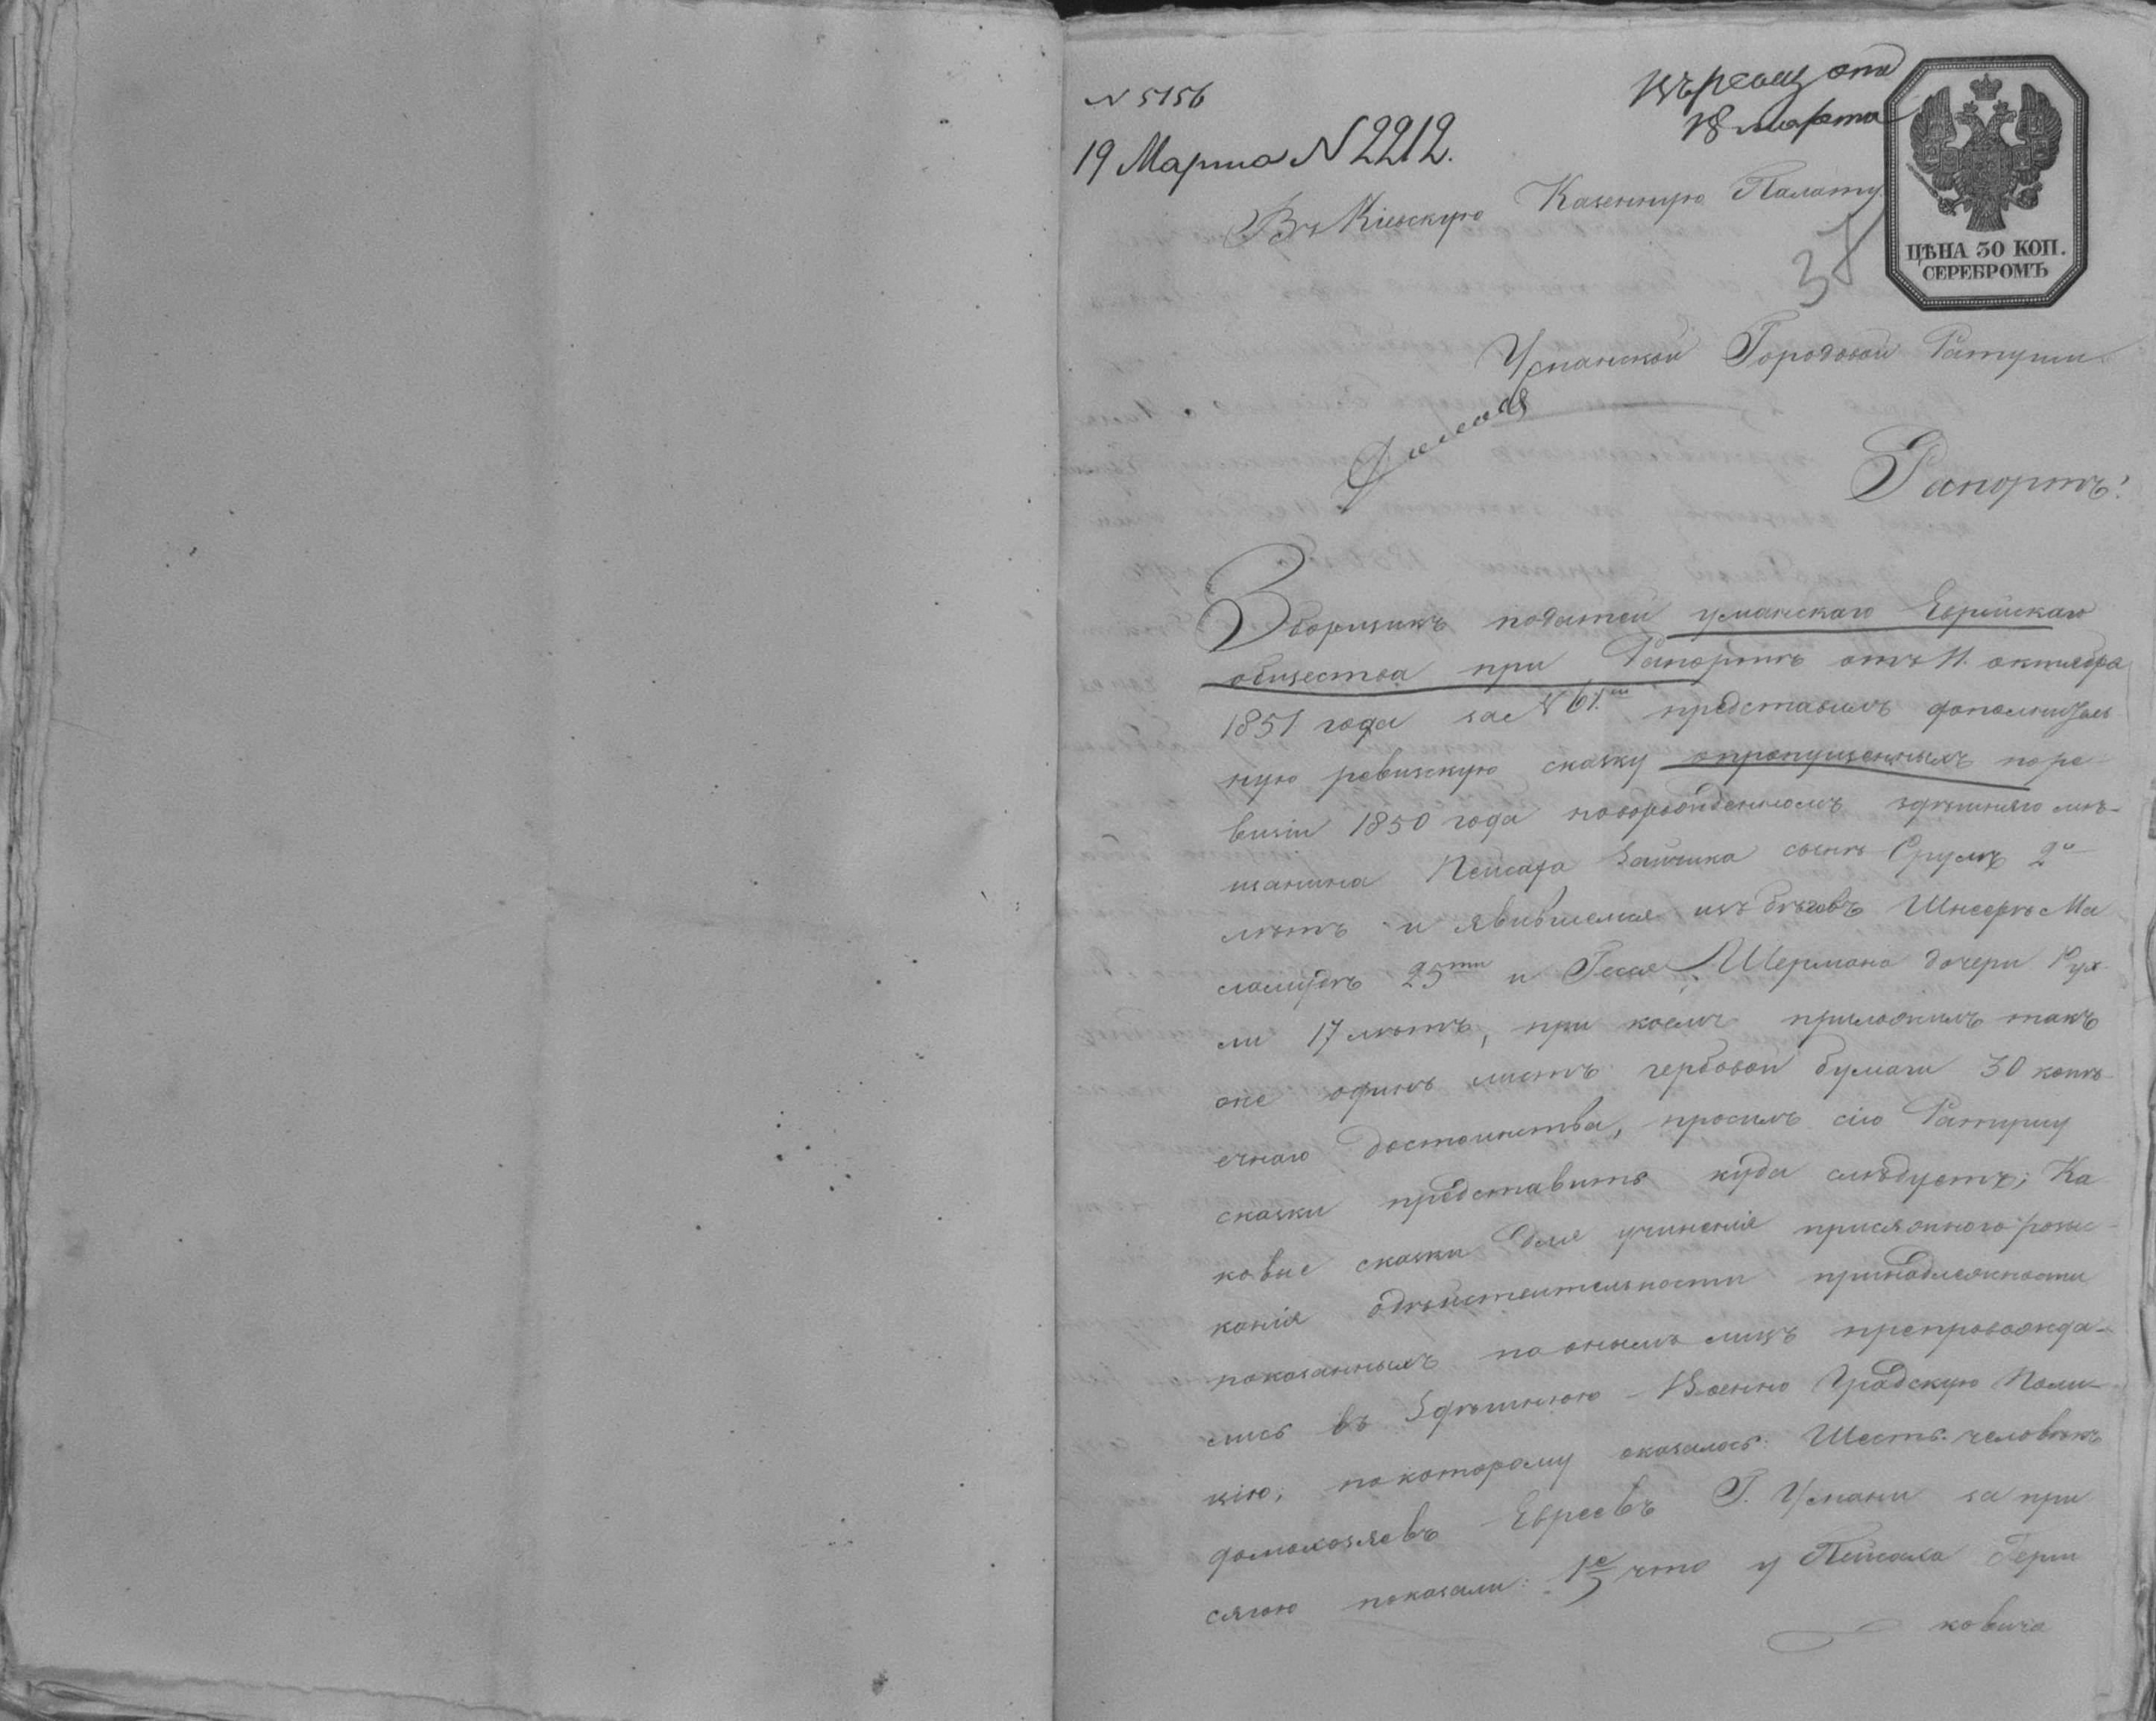 N 5156
19 Марта N 2212.
18 марта
Въ Кіевскую Казенную Палату
38
ЦѢНА 30 КОП.
СЕРЕБРОМЪ
Уманской Городовой Ратуши
Рапортъ.
Зборщикъ податей уманскаго Еврейскаго
общества при Рапортѣ отъ 11. октября
1851 года за N 61.м представилъ дополнитель
ную ревизскую сказку опропущенныхъ поре
визіи 1850 года новорожденномъ здѣшняго мѣ-
щанина Пейсаха Зайчика сынѣ Срулѣ 2хъ
лѣтъ и явившемся изъ бѣговъ Шнеерѣ Ма
25ти и Шермана дочери Рух
ли 17 лѣтъ, при коемъ приложилъ такъ
же одинъ листъ гербовой бумаги 30 копѣ
ечнаго достоинства, просилъ сію Ратушу
сказки представить куда слѣдуетъ; Ка
ковые сказки для учиненія присяжнаго розыс
канія одѣйствительности принадлежности
показанныхъ по онымъ лицъ препровожда-
лись въ Здѣшнюю Военно Градскую Поли-
цію, по которому оказалось: Шесть человѣкъ
домохозяевъ Евреевъ Г. Умани за при
сягою показали: 1е что у Пейсаха Герш
ковича